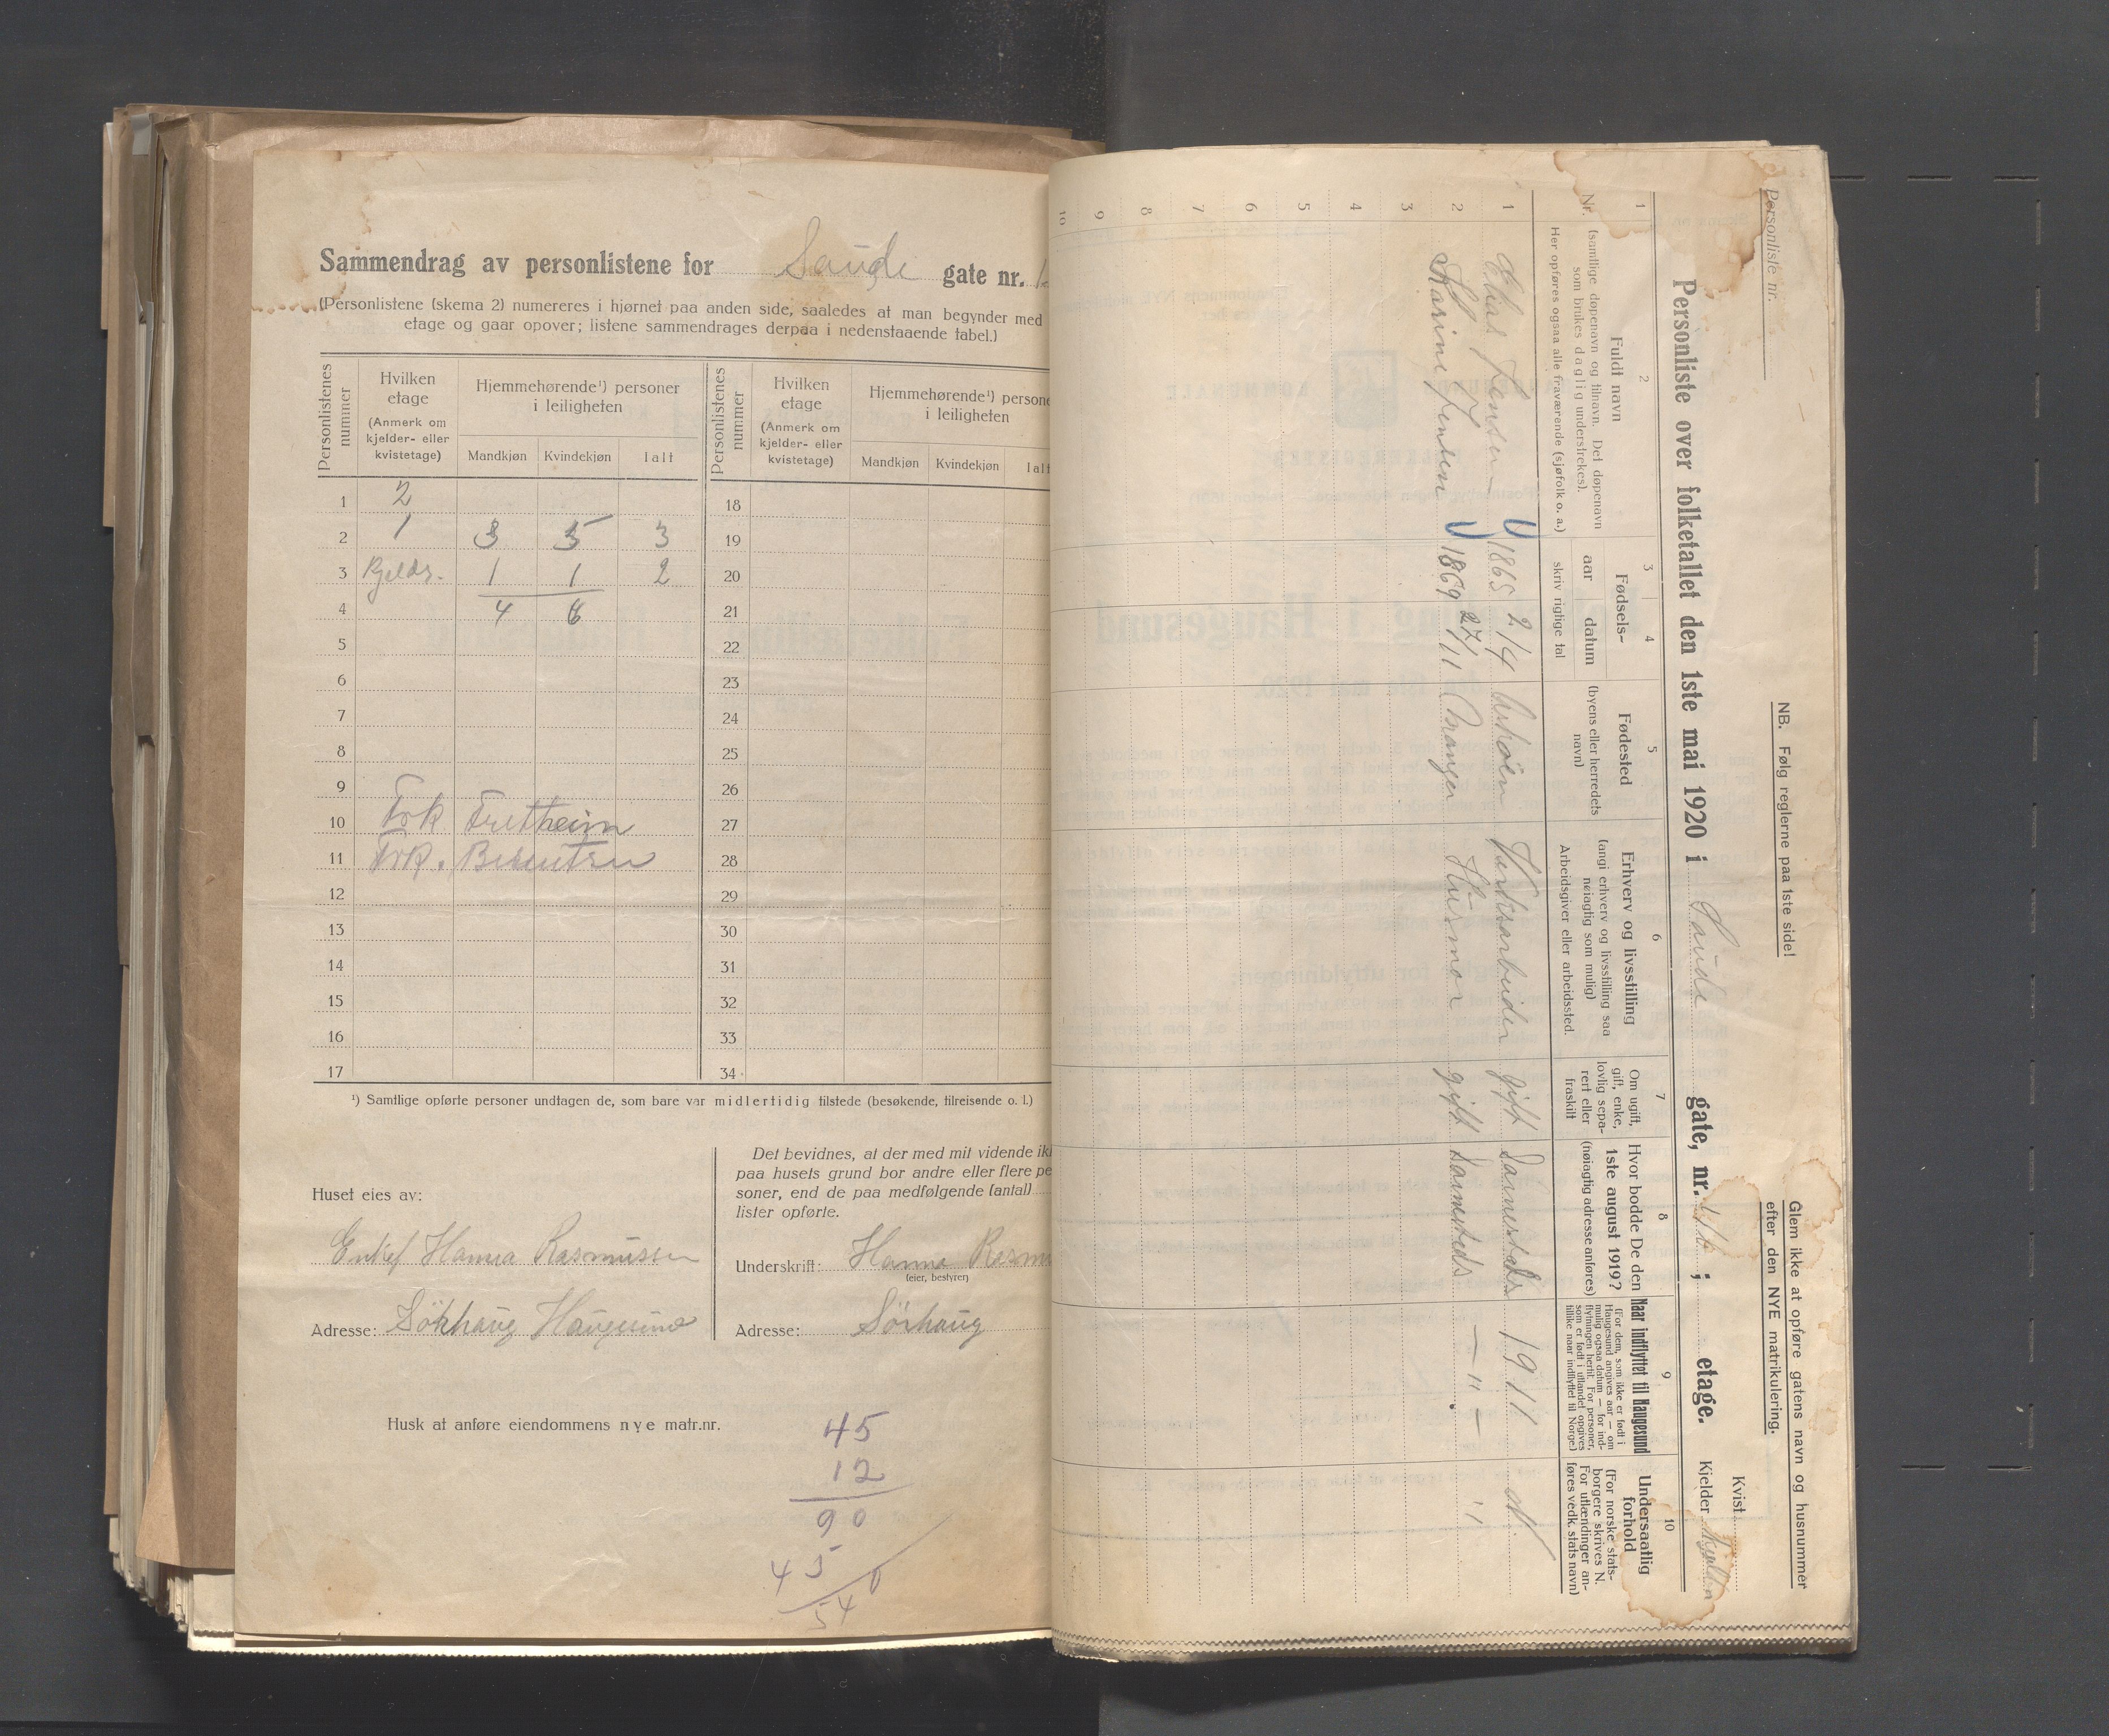 Sammendrag av personlistene for Saude gate nr.
(Personlistene (skema 2) numereres i hjørnet paa anden side, saaledes at man begynder med
etage og gaar opover; listene sammendrages derpaa i nedenstaaende tabel.)
Personlistenes nummer
Hvilken etage
(Anmerk om kjelder- eller kvistetage)
Hjemmehørende¹) personer i leiligheten
Mandkjøn Kvindekjøn Ialt
Personlistenes nummer
Hvilken etage
(Anmerk om kjelder- eller kvistetage)
Hjemmehørende¹) persone
i leiligheten
Mandkjøn Kvindekjøn Ialt
1 2 18
2 1 3 5 3 19
3 Kjeldr. 1 1 2 20
4 4 6 21
5 22
6 23
7 24
8 25
9 26
10 Frk Fretheim 27
11 Frk. Berentsen 28
12 29
13 30
14 31
15 32
16 33
17 34
¹) Samtlige opførte personer undtagen de, som bare var midlertidig tilstede (besøkende, tilreisende o. l.)
Huset eies av:
Enkef Hanna Rasmussen
Adresse: Sörhaug Haugesund
Det bevidnes, at der med mit vidende ik
paa husets grund bor andre eller flere pe
soner, end de paa medfølgende (antal)
lister opførte.
Underskrift: Hanna Rasmu
(eier, bestyrer)
Adresse: Sörhaug
Husk at anføre eiendommens nye matr.nr.
45
12
90
45
540
Personliste nr.
NB. Følg reglerne paa 1ste side!
Glem ikke at opføre gatens navn og husnummer
efter den NYE matrikulering.
Kvist
Personliste over folketallet den 1ste mai 1920 i Saude gate, nr. ; etage. Kjelder
1 2 3 4 5 6 7 8 9 10
Nr.
Fuldt navn
(samtlige døpenavn og tilnavn. Det døpenavn
som brukes daglig understrekes).
Her opføres ogsaa alle fraværende (sjøfolk o. a.)
Fødsels-
aar datum
skriv rigtige tal
Fødested
(byens eller herredets
navn)
Erhverv og livsstilling
(angi erhverv og livsstilling saa
nøiagtig som mulig)
Arbeidsgiver eller arbeidssted.
Om ugift,
gift, enke,
lovlig sepa-
rert eller
fraskilt
Hvor bodde De den
1ste august 1919?
(nøiagtig adresse anføres)
Naar indflyttet til Haugesund
(For dem, som ikke er født i
Haugesund angives aar — om
mulig ogsaa datum — for ind-
flytningen hertil. For personer,
som er født i utlandet opgives
tillike naar indflyttet til Norge.)
Undersaatlig
forhold
(For norske stats-
borgere skrives N.
For utlændinger an-
føres vedk. stats navn)
1 Elias Jensen 1865 2/4 Verksarbeider gift Sammesteds 1911 N
2 Karine Jensen 1869 27/11 Stavanger Husmor gift Sammesteds — " — "
3
4
5
6
7
8
9
10